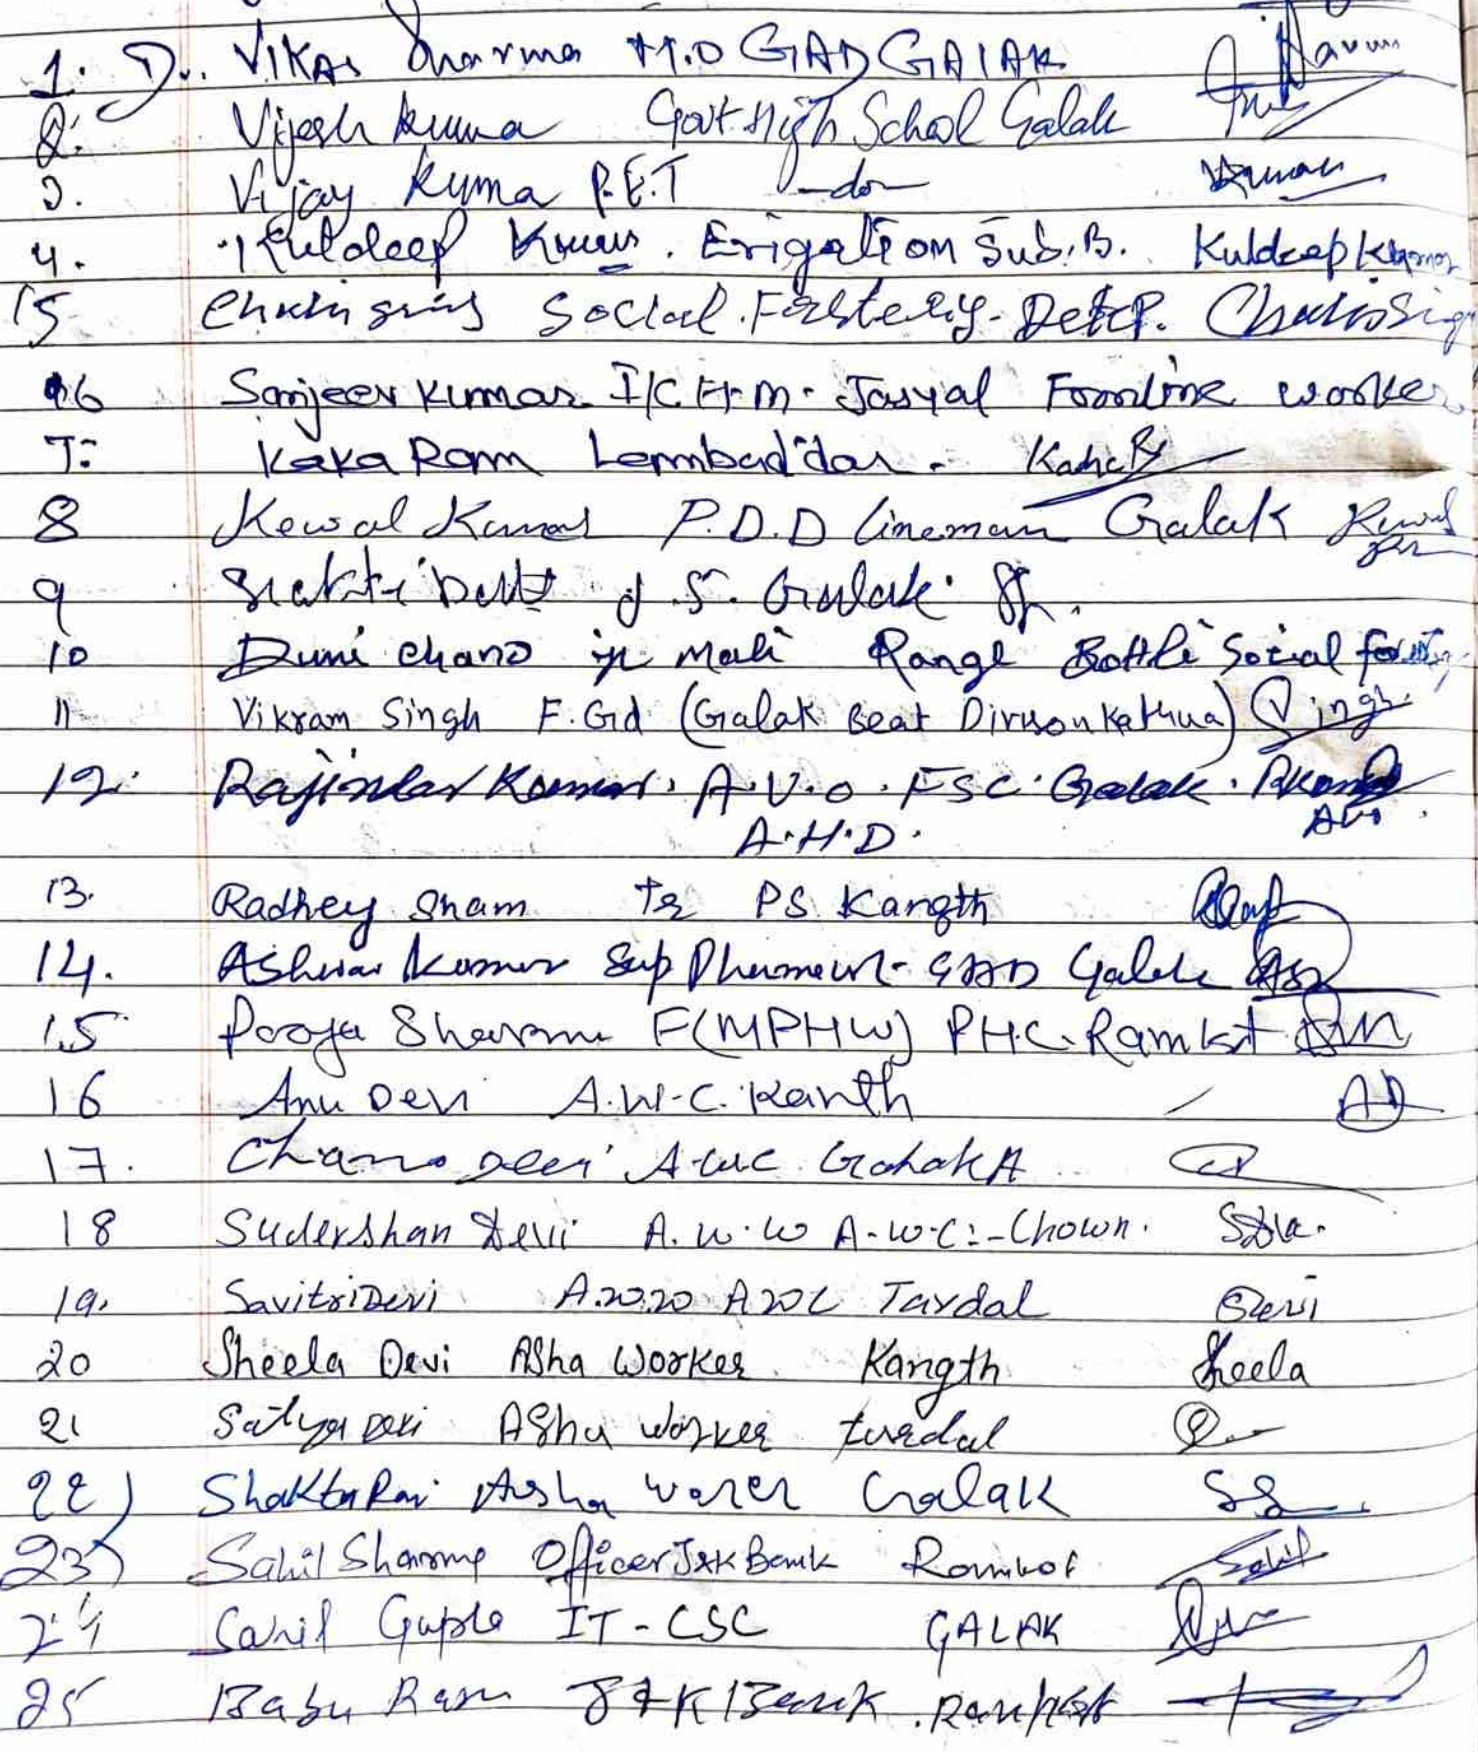 1. Dr. Vikas Sharma M.O GAD GALAK
2. Vijesh kuma Govt High School Galak
3. Vijay Kuma P.E.T -do-
4. Kuldeep Kumar. Erigation Sub.B. Kuldeep Kumar
5 Social.
6 Sanjeev Kumar I/C H.M. Jasyal Froontline worker
7: Kaka Ram Lambaddar.
8 Kewal Kumar P.D.D lineman Galak Kewal
9 Galak
10 Duni chand Mali Range Bottli Social
11 Vikram Singh F.Gd (Galak Beat Divison Kathua) Singh
12. Rajinder Kumar. A.V.O. FSC. Galak.
A.H.D.
13. Radhey Sham PS Kangth
14. Kumar Galak
15 Pooja Sharma F(MPHW) PHC. Ramkot
16 Anu Devi A.W.C. Kanth AD
17. Devi A.W.C
18 Sudershan Devi A.W.W A.W.C:-Chown.
19. Savitri Devi A.W.W AWC Tardal Devi
20 Sheela Devi Asha Worker Kangth Sheela
21 Satya Devi Asha Worker turdal
22) Asha Galak
23) Sahil Sharma Officer J&K Bank Ramkot Sahil
24 Gupta IT-CSC GALAK
25 Babu Ram J&K Bank. Ramkot